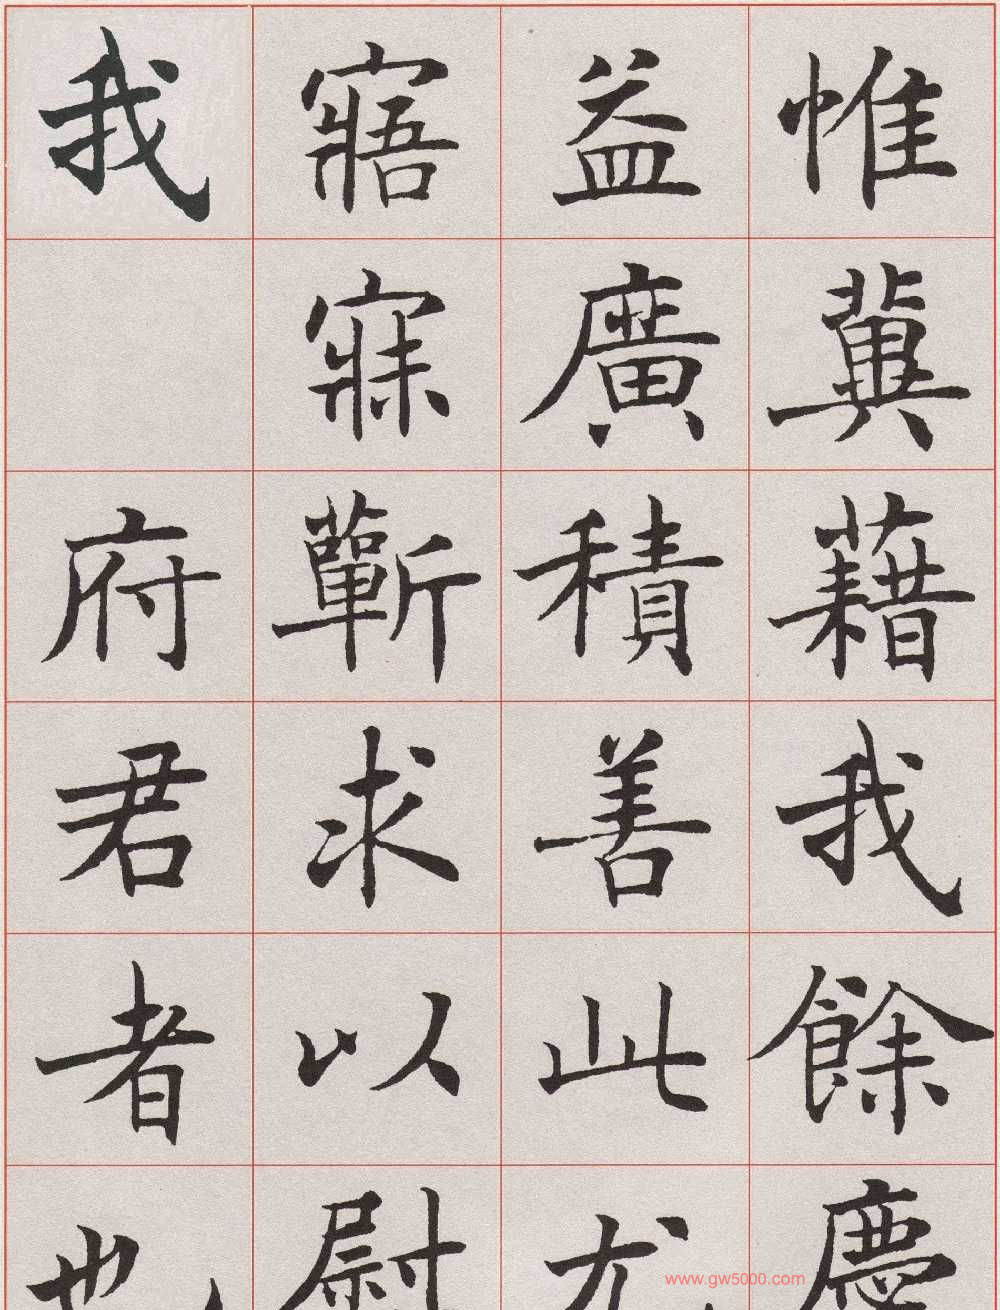 惟冀藉我餘慶
益廣積善此尤
寤寐蘄求以尉
我府君者也
www.gw5000.com